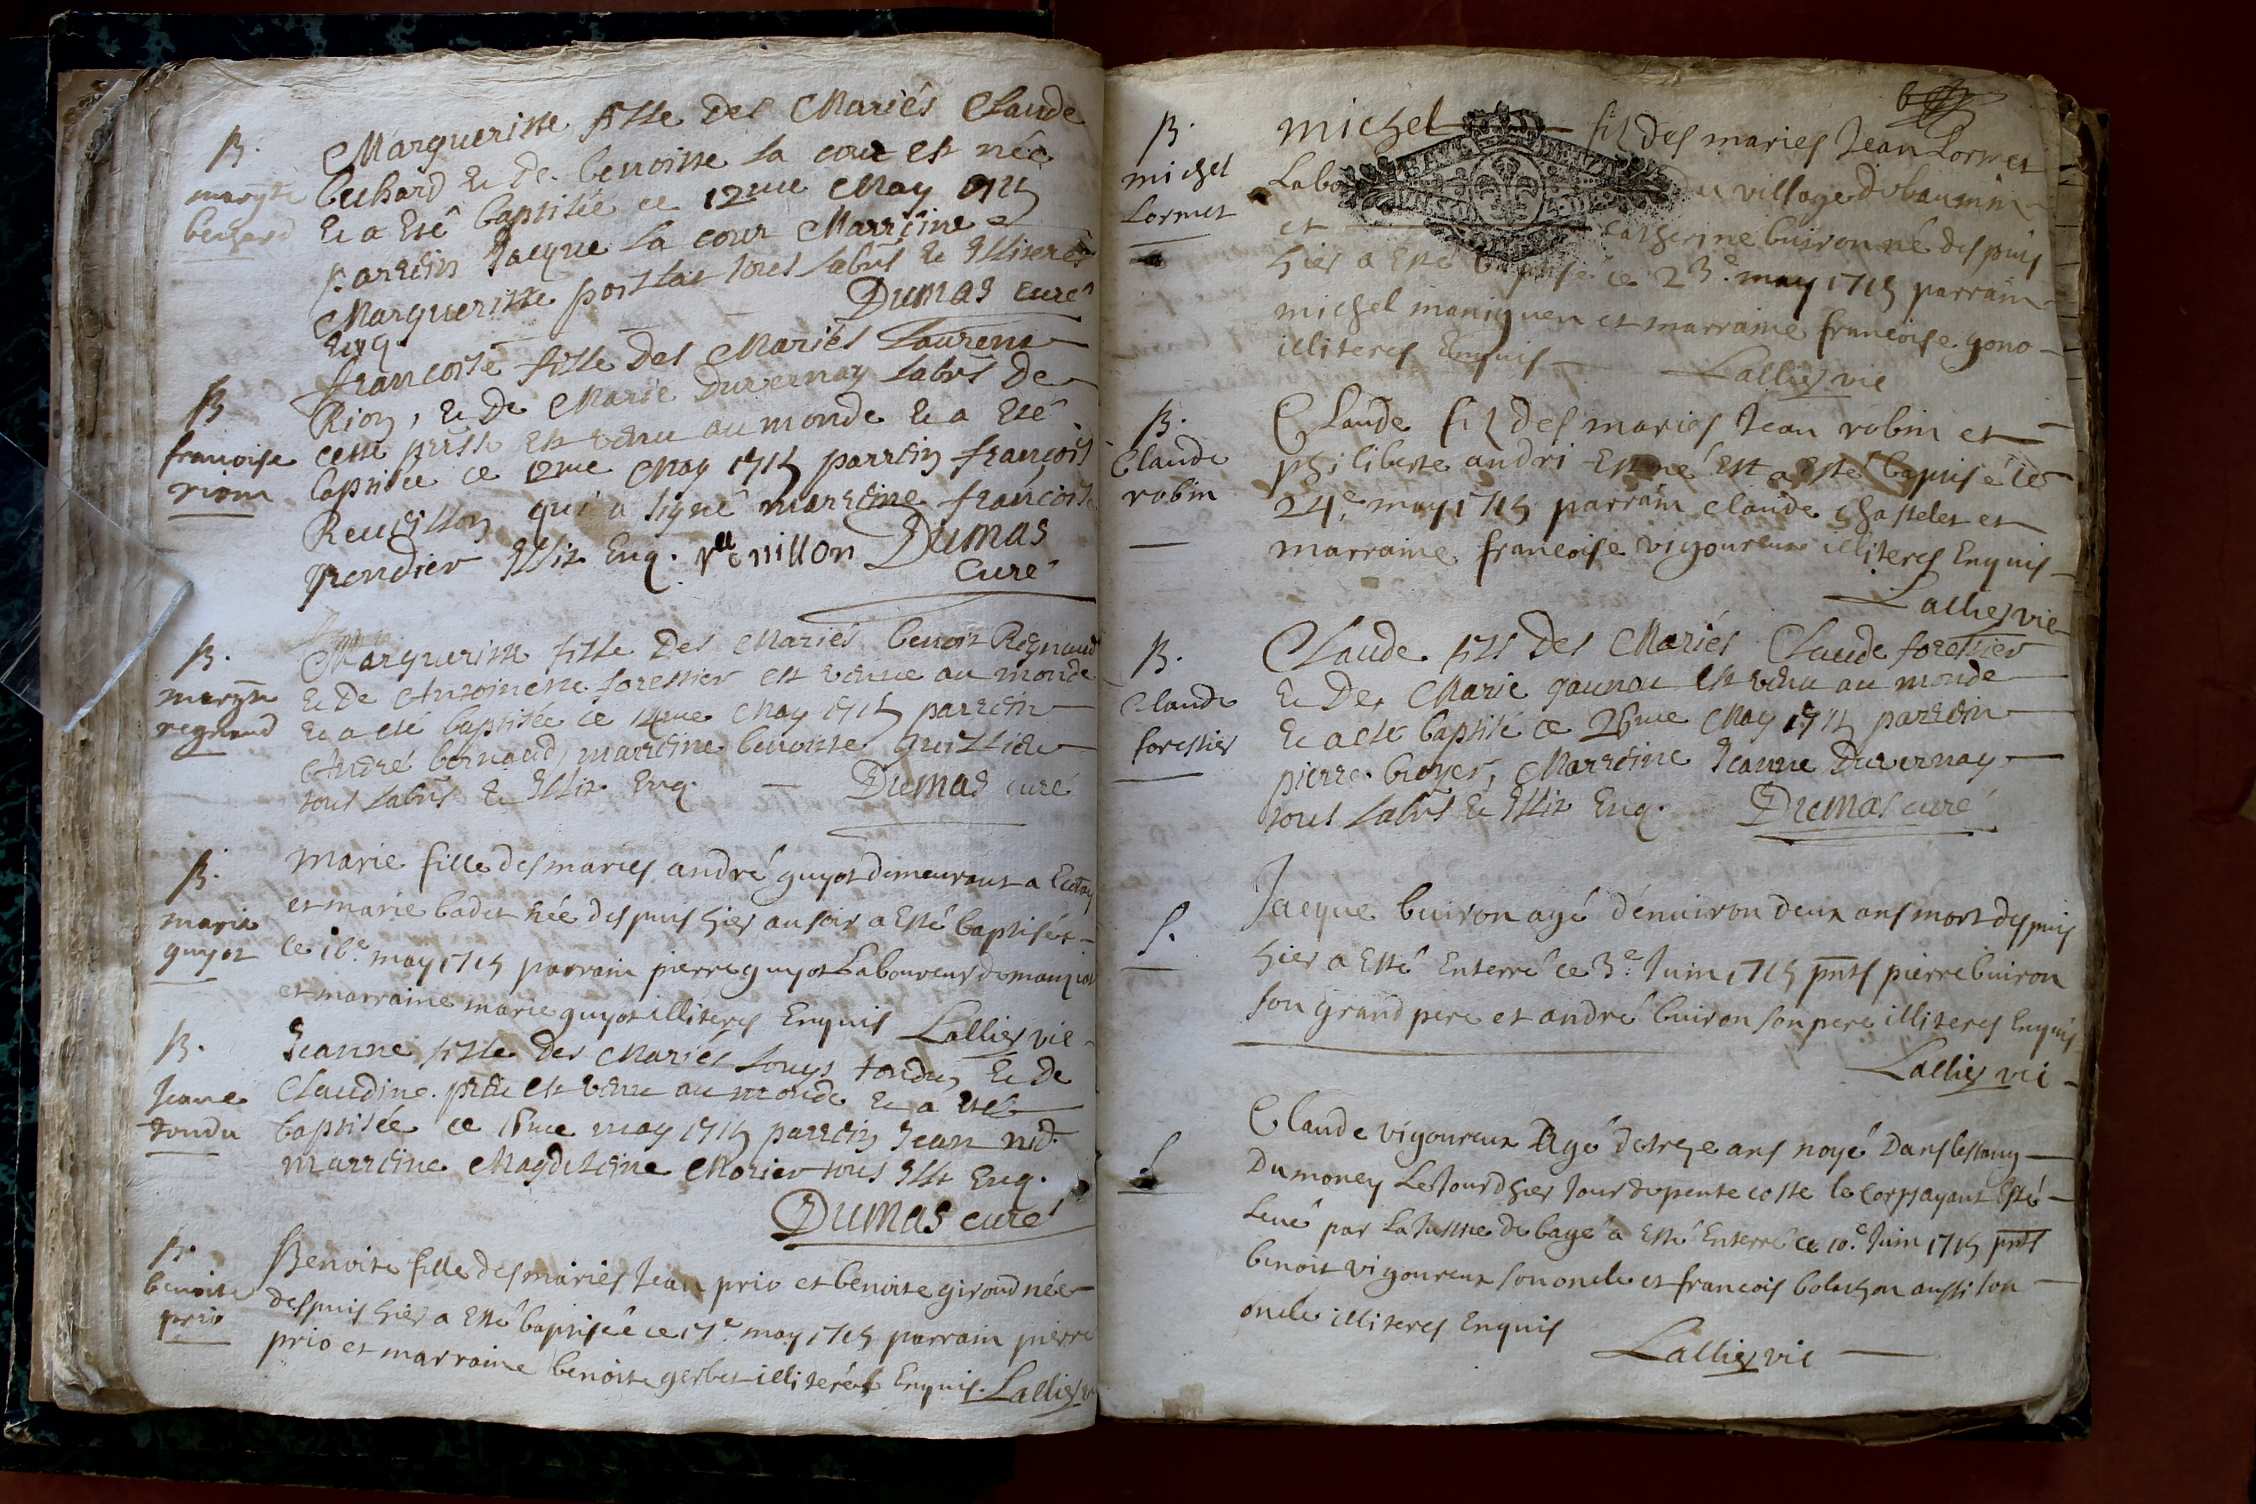 B.
margte
bechard
Margueritte fille des Mariés Claude
bechard & de benoitte la cour est née
& a esté baptisée ce 12me May 1715
parrein Jacque la cour Marreine
Margueritte post lat tous labrs & Illiterés
Enq. Dumas curé
B.
francoise
rion
francoise fille des Mariés Laurent
Rion, & de Marie Duvernay labrs de
cette prsse est venu au monde & a été
baptisée ce 12me May 1715 parrein francois
Reuillon qui a signé marreine francoise
Grendier Illit Enq. reuillon Dumas
Curé
B.
margte
regnaud
Margueritte fille des Mariés benoit Regnaud
& de Antoinette forestier est venue au monde
& a eté baptisée ce 14me May 1715 parrein
André bernaud, marreine benoitte
tous labrs & Illit Enq. Dumas curé
B.
marie
guyot
Marie fille des mariés andré guyot demeurant a
et marie badet née despuis hier au soir a Esté baptisée
ce 16e may 1715 parrain pierre guyot Laboureur de manziat
et marraine marie guyot illiteres Enquis Lallier vic
B.
Jeanne
tondu
Jeanne fille des Mariés Louys tondu, & de
Claudine prin est venu au monde & a été
baptisée ce 16me may 1715 parrein Jean
marreine Magdeleine Morier tous Illit Enq.
Dumas curé
B.
benoite
prio
Benoite fille des mariés Jean prio et benoite giroud née
despuis hier a Esté baptisée ce 17e may 1715 parrain pierre
prio et marraine benoite gerbet illiterés Enquis. Lallier
6
B.
michel
Lormet
michel fil des mariés Jean Lormet
Labo du village de
et catherine buiron né despuis
hier a Esté baptisé ce 23e may 1715 parrain
michel maniguen et marraine francoise gono
illiteres Enquis Lallier vic
B.
Claude
robin
Claude fil des mariés Jean robin et
philiberte andri Est né Est a Esté baptisé le
24e may 1715 parrain claude chastelet et
marraine francoise vigoureux illiteres Enquis
Lallier vic
B.
Claude
forestier
Claude fils des Mariés Claude forestier
& de Marie est venu au monde
& a esté baptisé ce 26me May 1715 parrein
pierre broyer, Marreine Jeanne Duvernay
tous labrs & Illit Enq. Dumas curé
S.
Jacque buiron agé d'enuiron deux ans mort despuis
hier a Esté Enterré ce 3e Juin 1715 pnts pierre buiron
son grand pere et andré buiron son pere illiteres Enquis
Lallier vic
S
Claude vigoureux Agé de treze ans noyé Dans lestang
Du money Le Jour dhier Jour de pentecoste le corps ayant Esté
Levé par La Justice de bagé a Esté Enterré ce 10e Juin 1715 pnts
benoit vigoureux son oncle et francois bolachon aussi son
oncle illiteres Enquis
Lallier vic